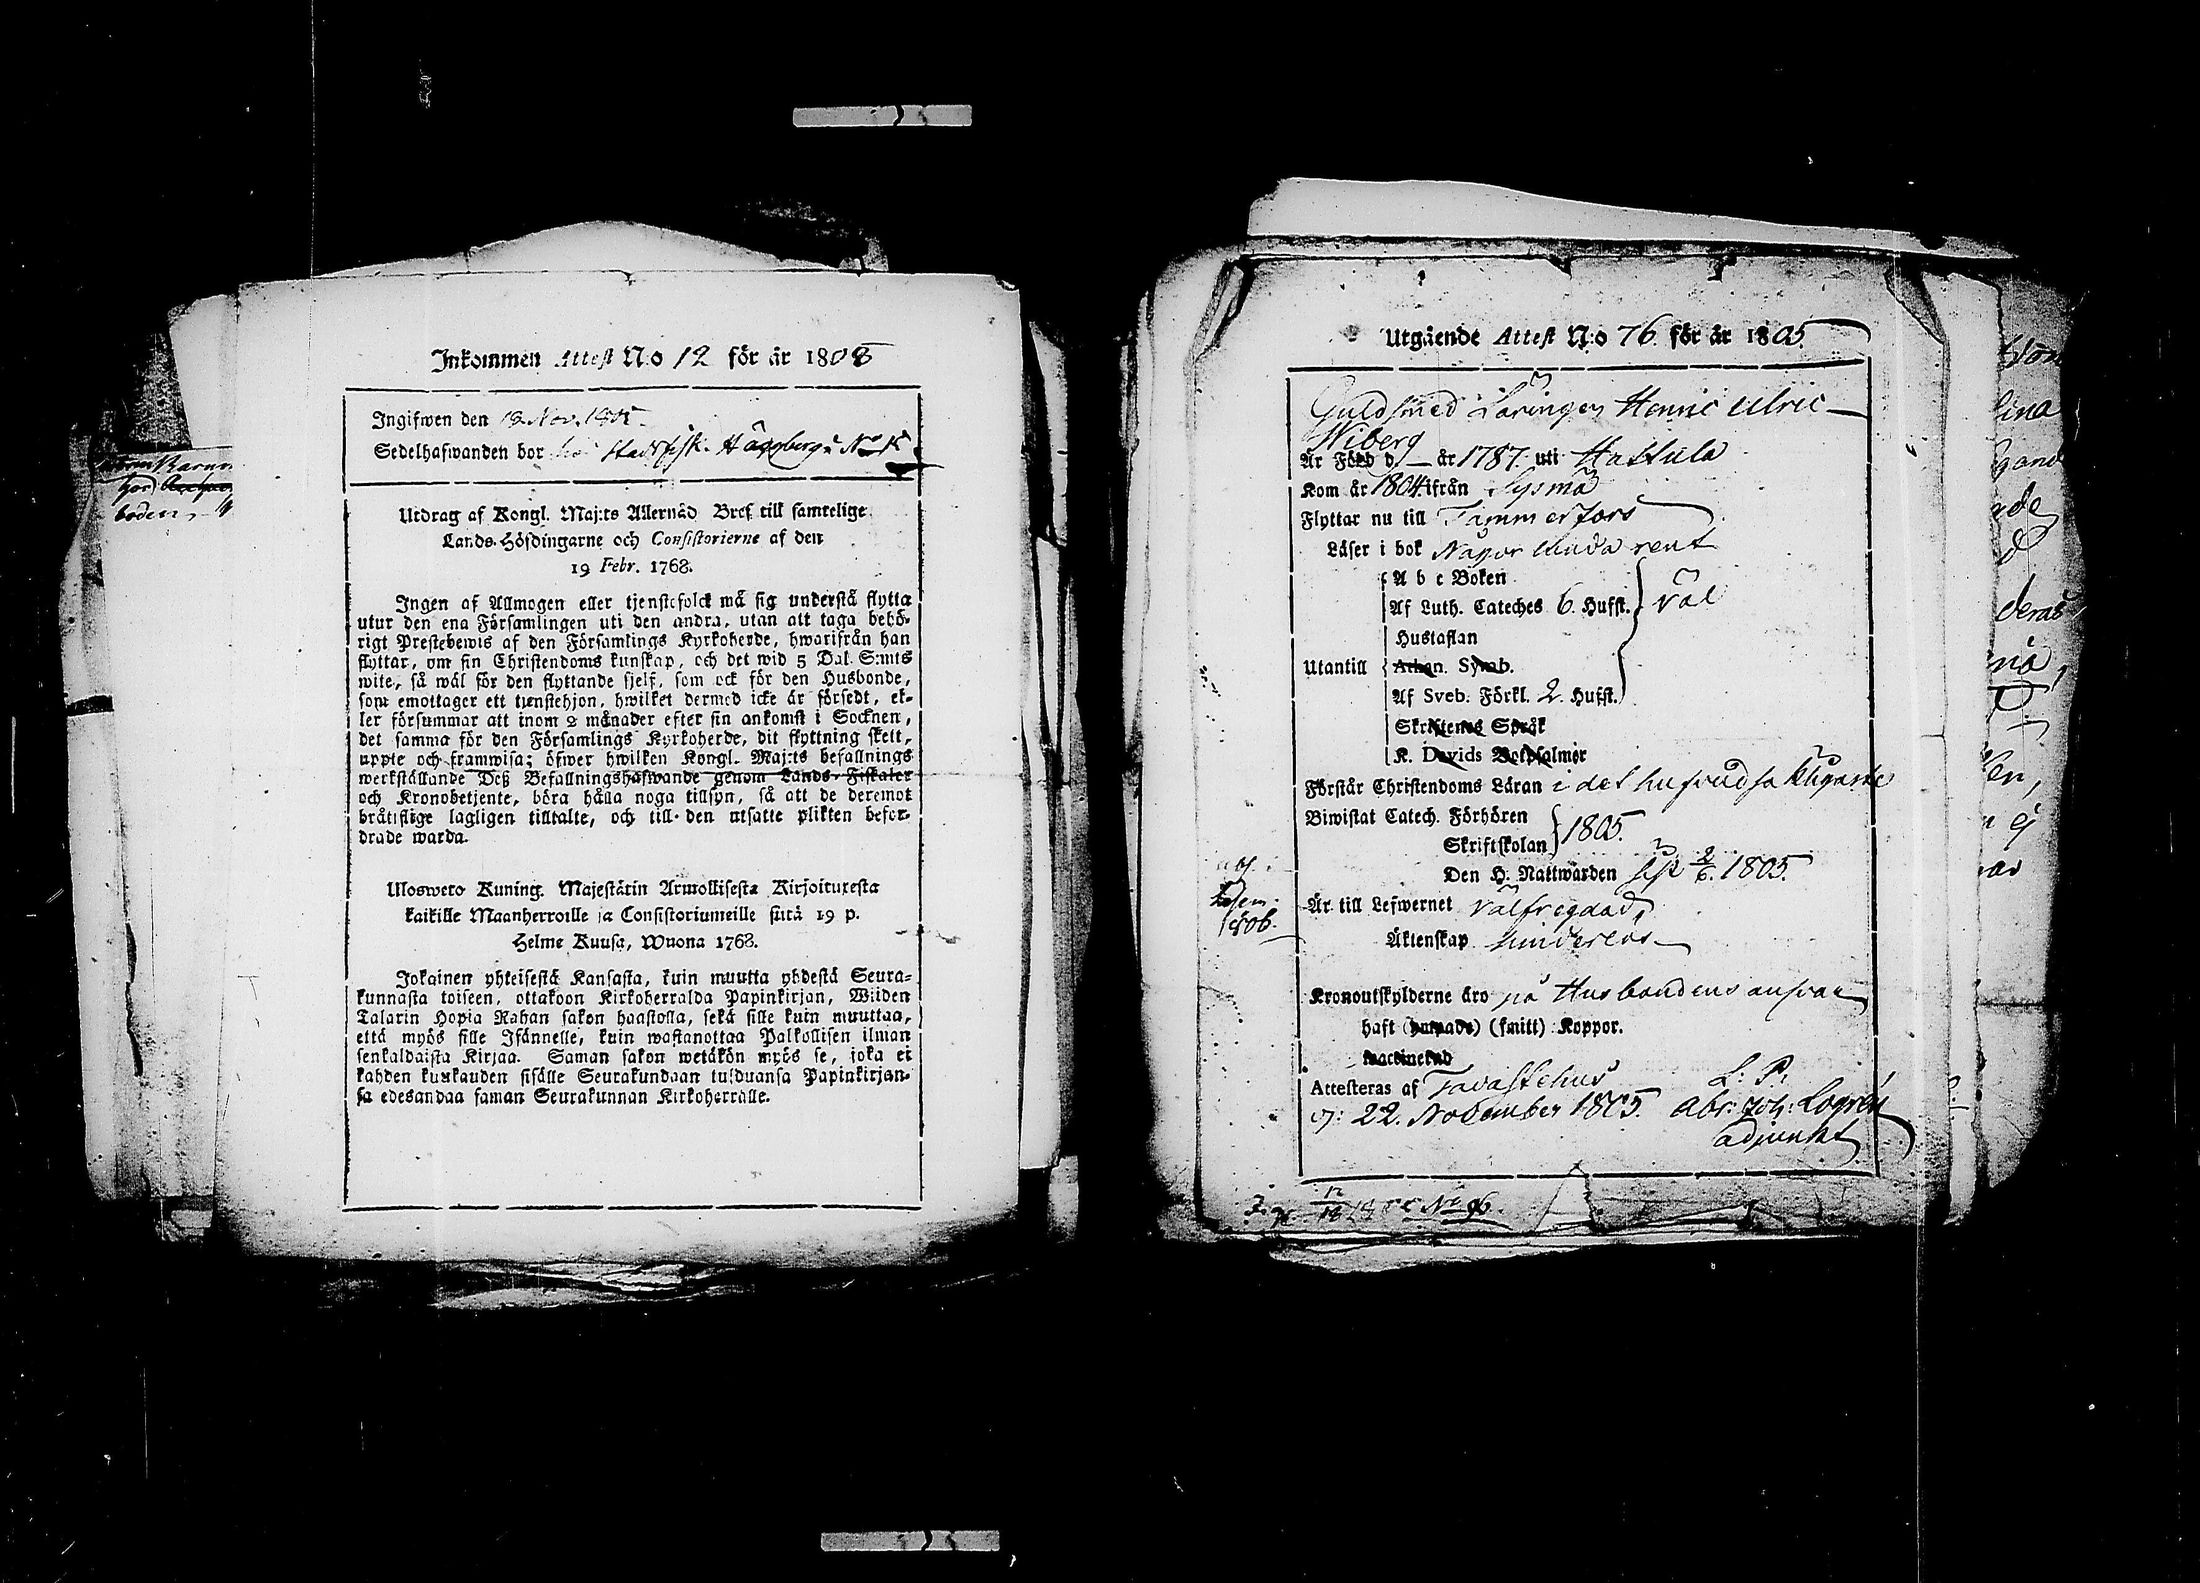 Inkommen Attest N:o 12 för år 1805
Ingifwen den 19 Nov. 1805.
Sedelhafwanden bor hos Stadsfisk. Häggberg N:o
Utdrag af Kongl. Maj:ts Allernåd Bref till samtelige
Lands-Höfdingarne och Consistorierne af den
19 Febr. 1768.
Ingen af Allmogen eller tjenstefolck må sig understå flytta
utur den ena Församlingen uti den andra, utan att taga behö-
rigt Prestebewis af den Församlings Kyrkoherde, hwarifrån han
flyttar, om sin Christendoms kunskap, och det wid 5 Dal. S:mts
wite, så wäl för den flyttande sjelf, som ock för den Husbonde,
som emottager ett tjenstehjon, hwilket dermed icke är försedt, el-
ler försummar att inom 2 månader efter sin ankomst i Socknen,
det samma för den Församlings Kyrkoherde, dit flyttning skett,
uppte och framwisa; öfwer hwilken Kongl. Maj:ts befallnings
werkställande Deß Befallningshafwande genom Lands-Fiskaler
och Kronobetjente, böra hålla noga tillsyn, så att de deremot
bråtislige lagligen tilltalte, och till den utsatte plikten befor-
drade warda.
Ulosweto Kuning. Majestätin Armollisesta Kirjoituxesta
kaikille Maanherroille ja Consistoriumeille siitä 19 p.
Helme Kuusa, Wuona 1768.
Jokainen yhteisestä Kansasta, kuin muutta yhdestä Seura-
kunnasta toiseen, ottakoon Kirkoherralda Papinkirjan, Wiiden
Talarin Hopia Rahan sakon haastolla, sekä sille kuin muuttaa,
että myös sille Isännelle, kuin wastanottaa Palkollisen ilman
senkaldaista Kirjaa. Saman sakon wetäkön myös se, joka ei
kahden kuukauden sisälle Seurakundaan tulduansa Papinkirjan-
sa edesandaa saman Seurakunnan Kirkoherralle.
Utgående Attest N:o 76 för år 1805
Guldsmed Läringen Henric Ulric
Wiberg
Är Född d — år 1787. uti Hattula
Kom år 1804. ifrån Sysmä
Flyttar nu till Tammerfors
Läser i bok rent
A b c Boken
Af Luth. Cateches 6. Hufst. väl
Hustaflan
Utantill Athan. Symb.
Af Sveb. Förkl. 2. Hufst.
Skriftenes Språk
K. Davids Botpsalmer
Förstår Christendoms Läran i det hufvudsakligaste
Biwistat Catech. Förhören
Skriftskolan 1805.
Den H. Nattwarden sist 2/6. 1805.
Är till Lefwernet välfregdad,
Äktenskap hinderlös
Kronoutskylderne äro på Husbondens ansvar
haft (ympade) (smitt) Koppor.
vaccinerad
Attesteras af Tavastehus L: P:
22. November 1805. Abr: Joh: Logrén
adjunkt
1806.